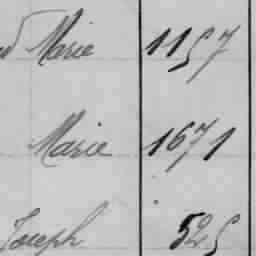 Marie 1157
Marie 1671
Joseph 525